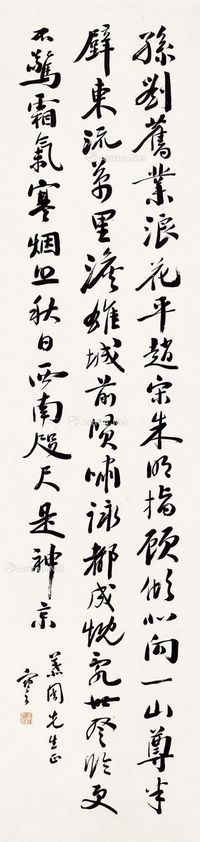 孫劉舊業浪花平趙宋朱明指顧傾心向一山尊半
壁東流萬里澹雄城前賢嘯詠都成世登臨更
不驚霜氣寒烟秋日西南咫尺是神京
先生正